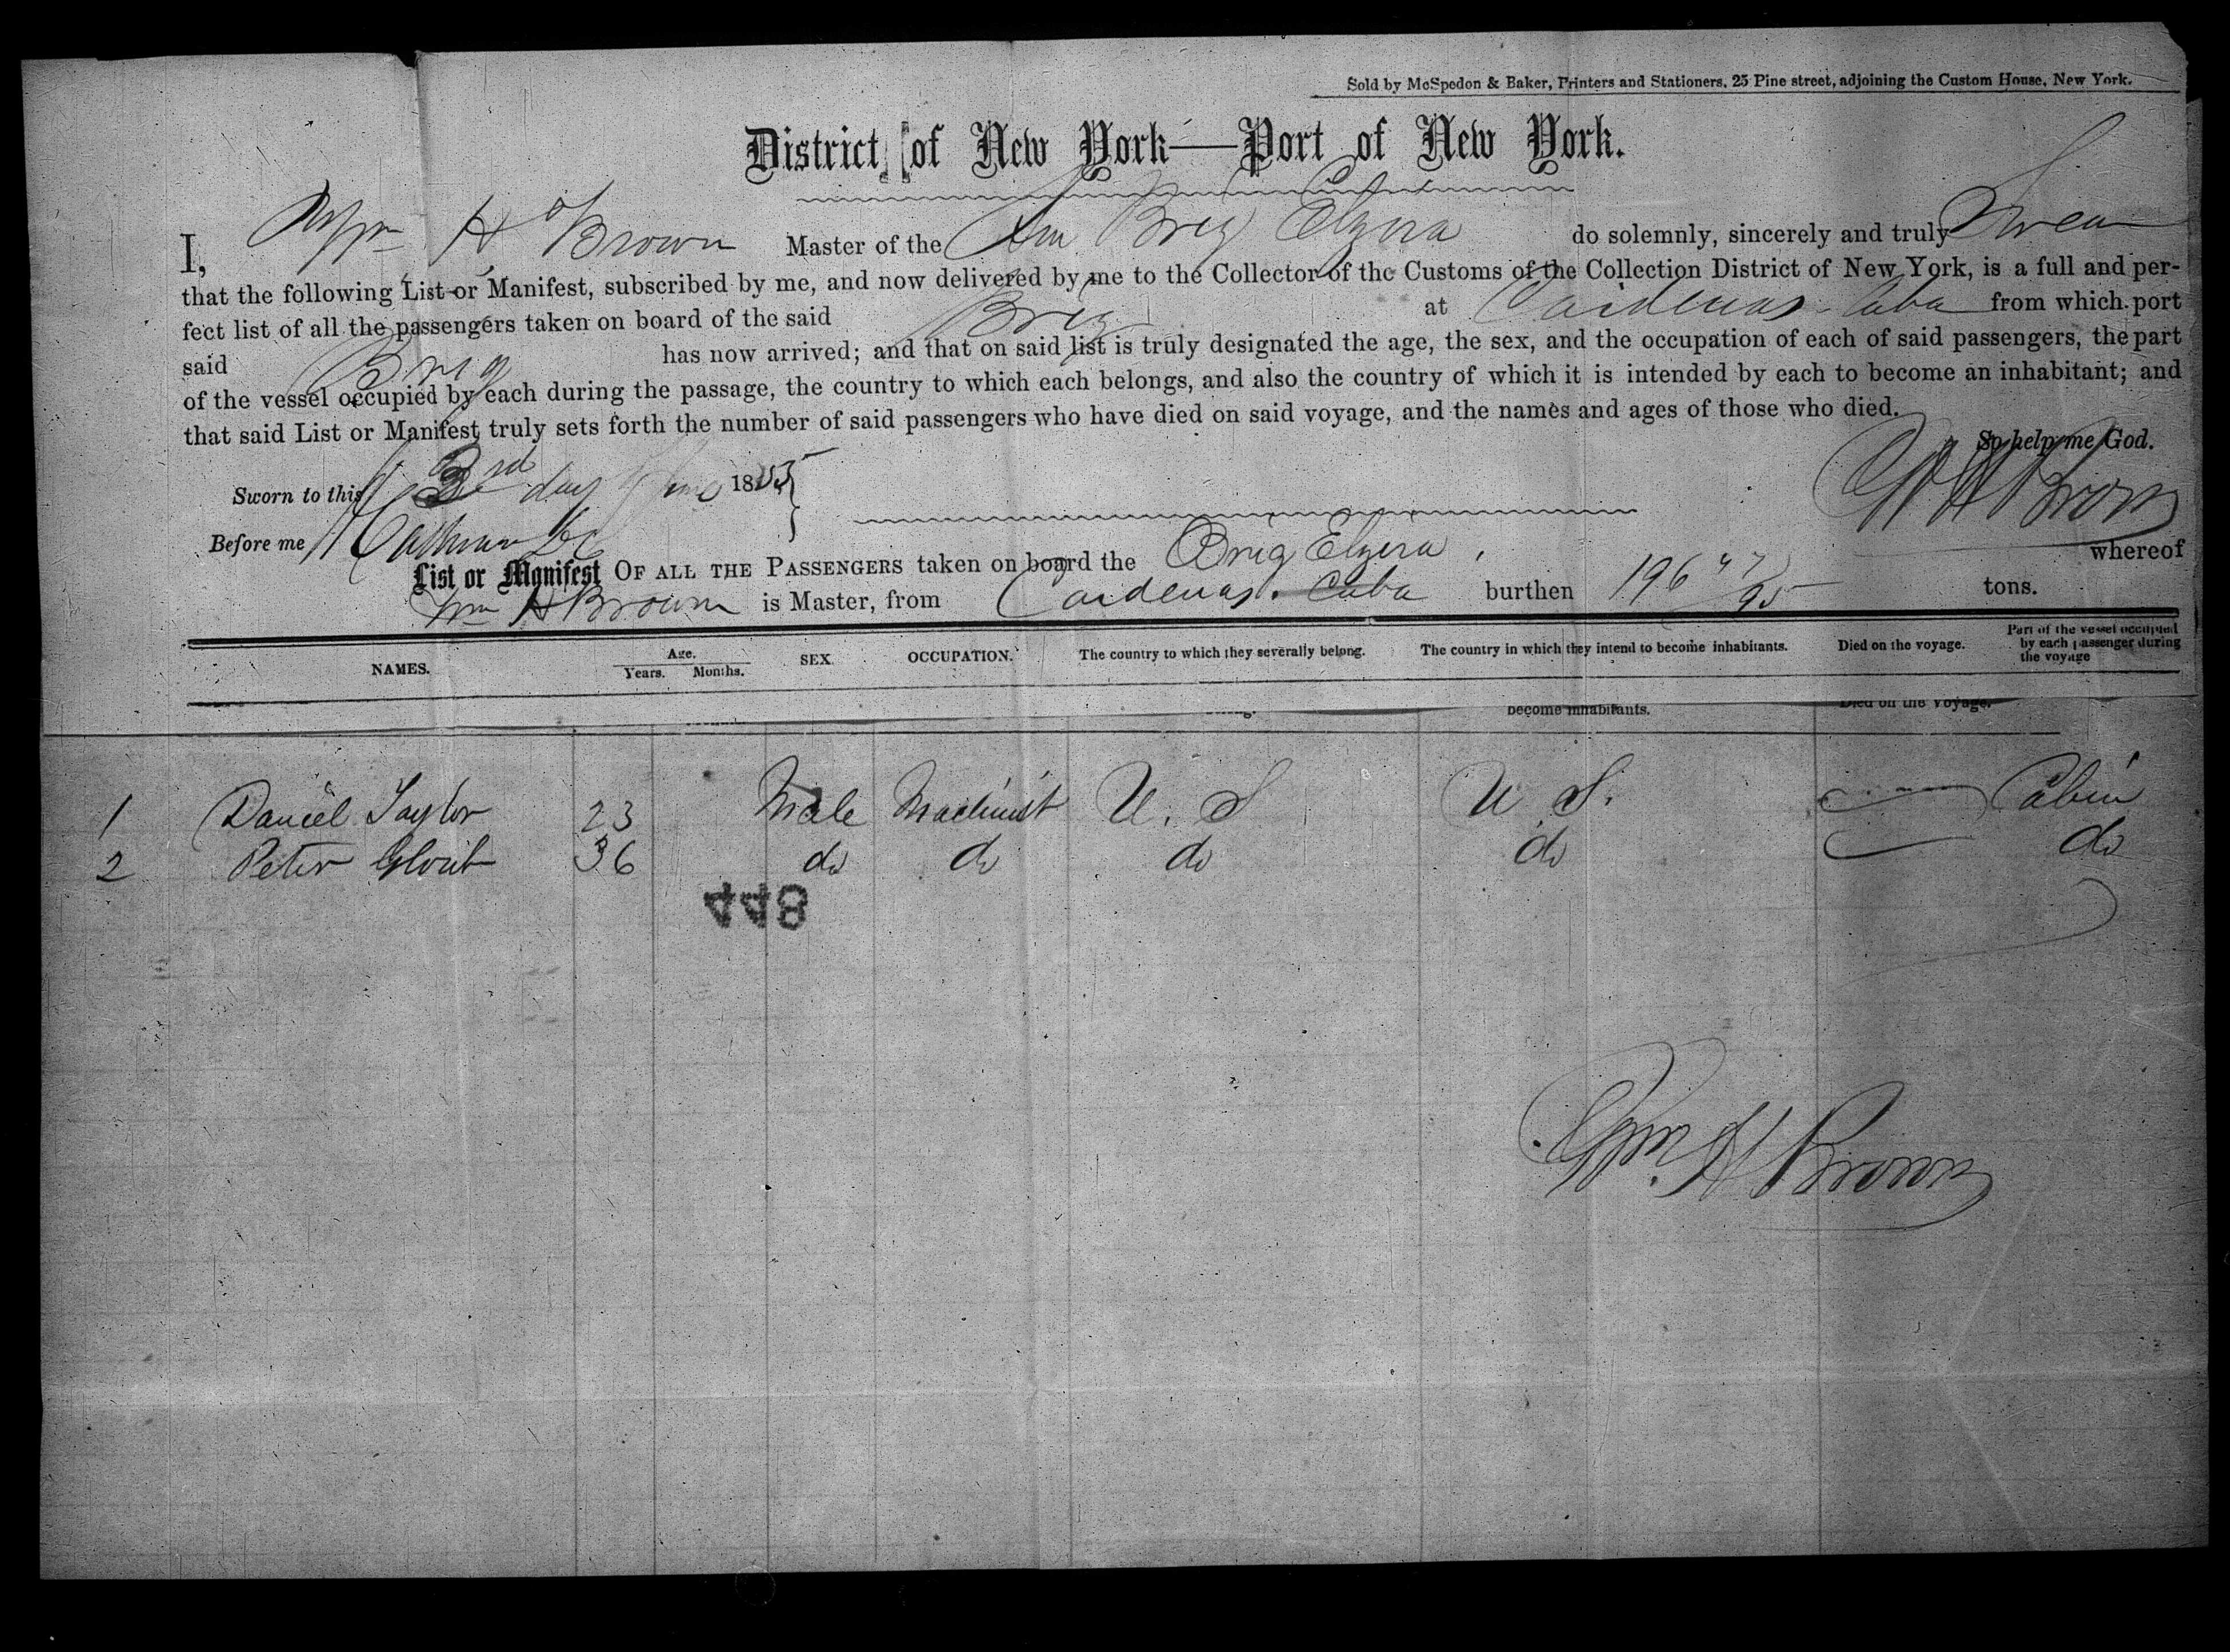 Sold by McSpedon & Baker, Printers and Stationers, 25 Pine street, adjoining the Custom House, New York.
District of New York—Port of New York.
I, Wm H Brown Master of the Am Brig Elzira do solemnly, sincerely and truly Swear
that the following List or Manifest, subscribed by me, and now delivered by me to the Collector of the Customs of the Collection District of New York, is a full and per-
fect list of all the passengers taken on board of the said Brig at Cardenas. Cuba from which port
said Brig has now arrived; and that on said list is truly designated the age, the sex, and the occupation of each of said passengers, the part
of the vessel occupied by each during the passage, the country to which each belongs, and also the country of which it is intended by each to become an inhabitant; and
that said List or Manifest truly sets forth the number of said passengers who have died on said voyage, and the names and ages of those who died.
So help me God.
Sworn to this 3rd day June 1855
Wm H Brown
Before me
List or Manifest OF ALL THE PASSENGERS taken on board the Brig Elzira, whereof
Wm H Brown is Master, from Cardenas. Cuba burthen 196 47/95 tons.
NAMES. Age. Years. Months. SEX. OCCUPATION. The country to which they severally belong. The country in which they intend to become inhabitants. Died on the voyage. Part of the vessel occupied by each passenger during the voyage
become inhabitants. Died on the voyage.
1 Daniel Taylor 23 Male Machinist U. S U. S. Cabin
2 Peter 36 do do do do do
448
Wm. H Brown